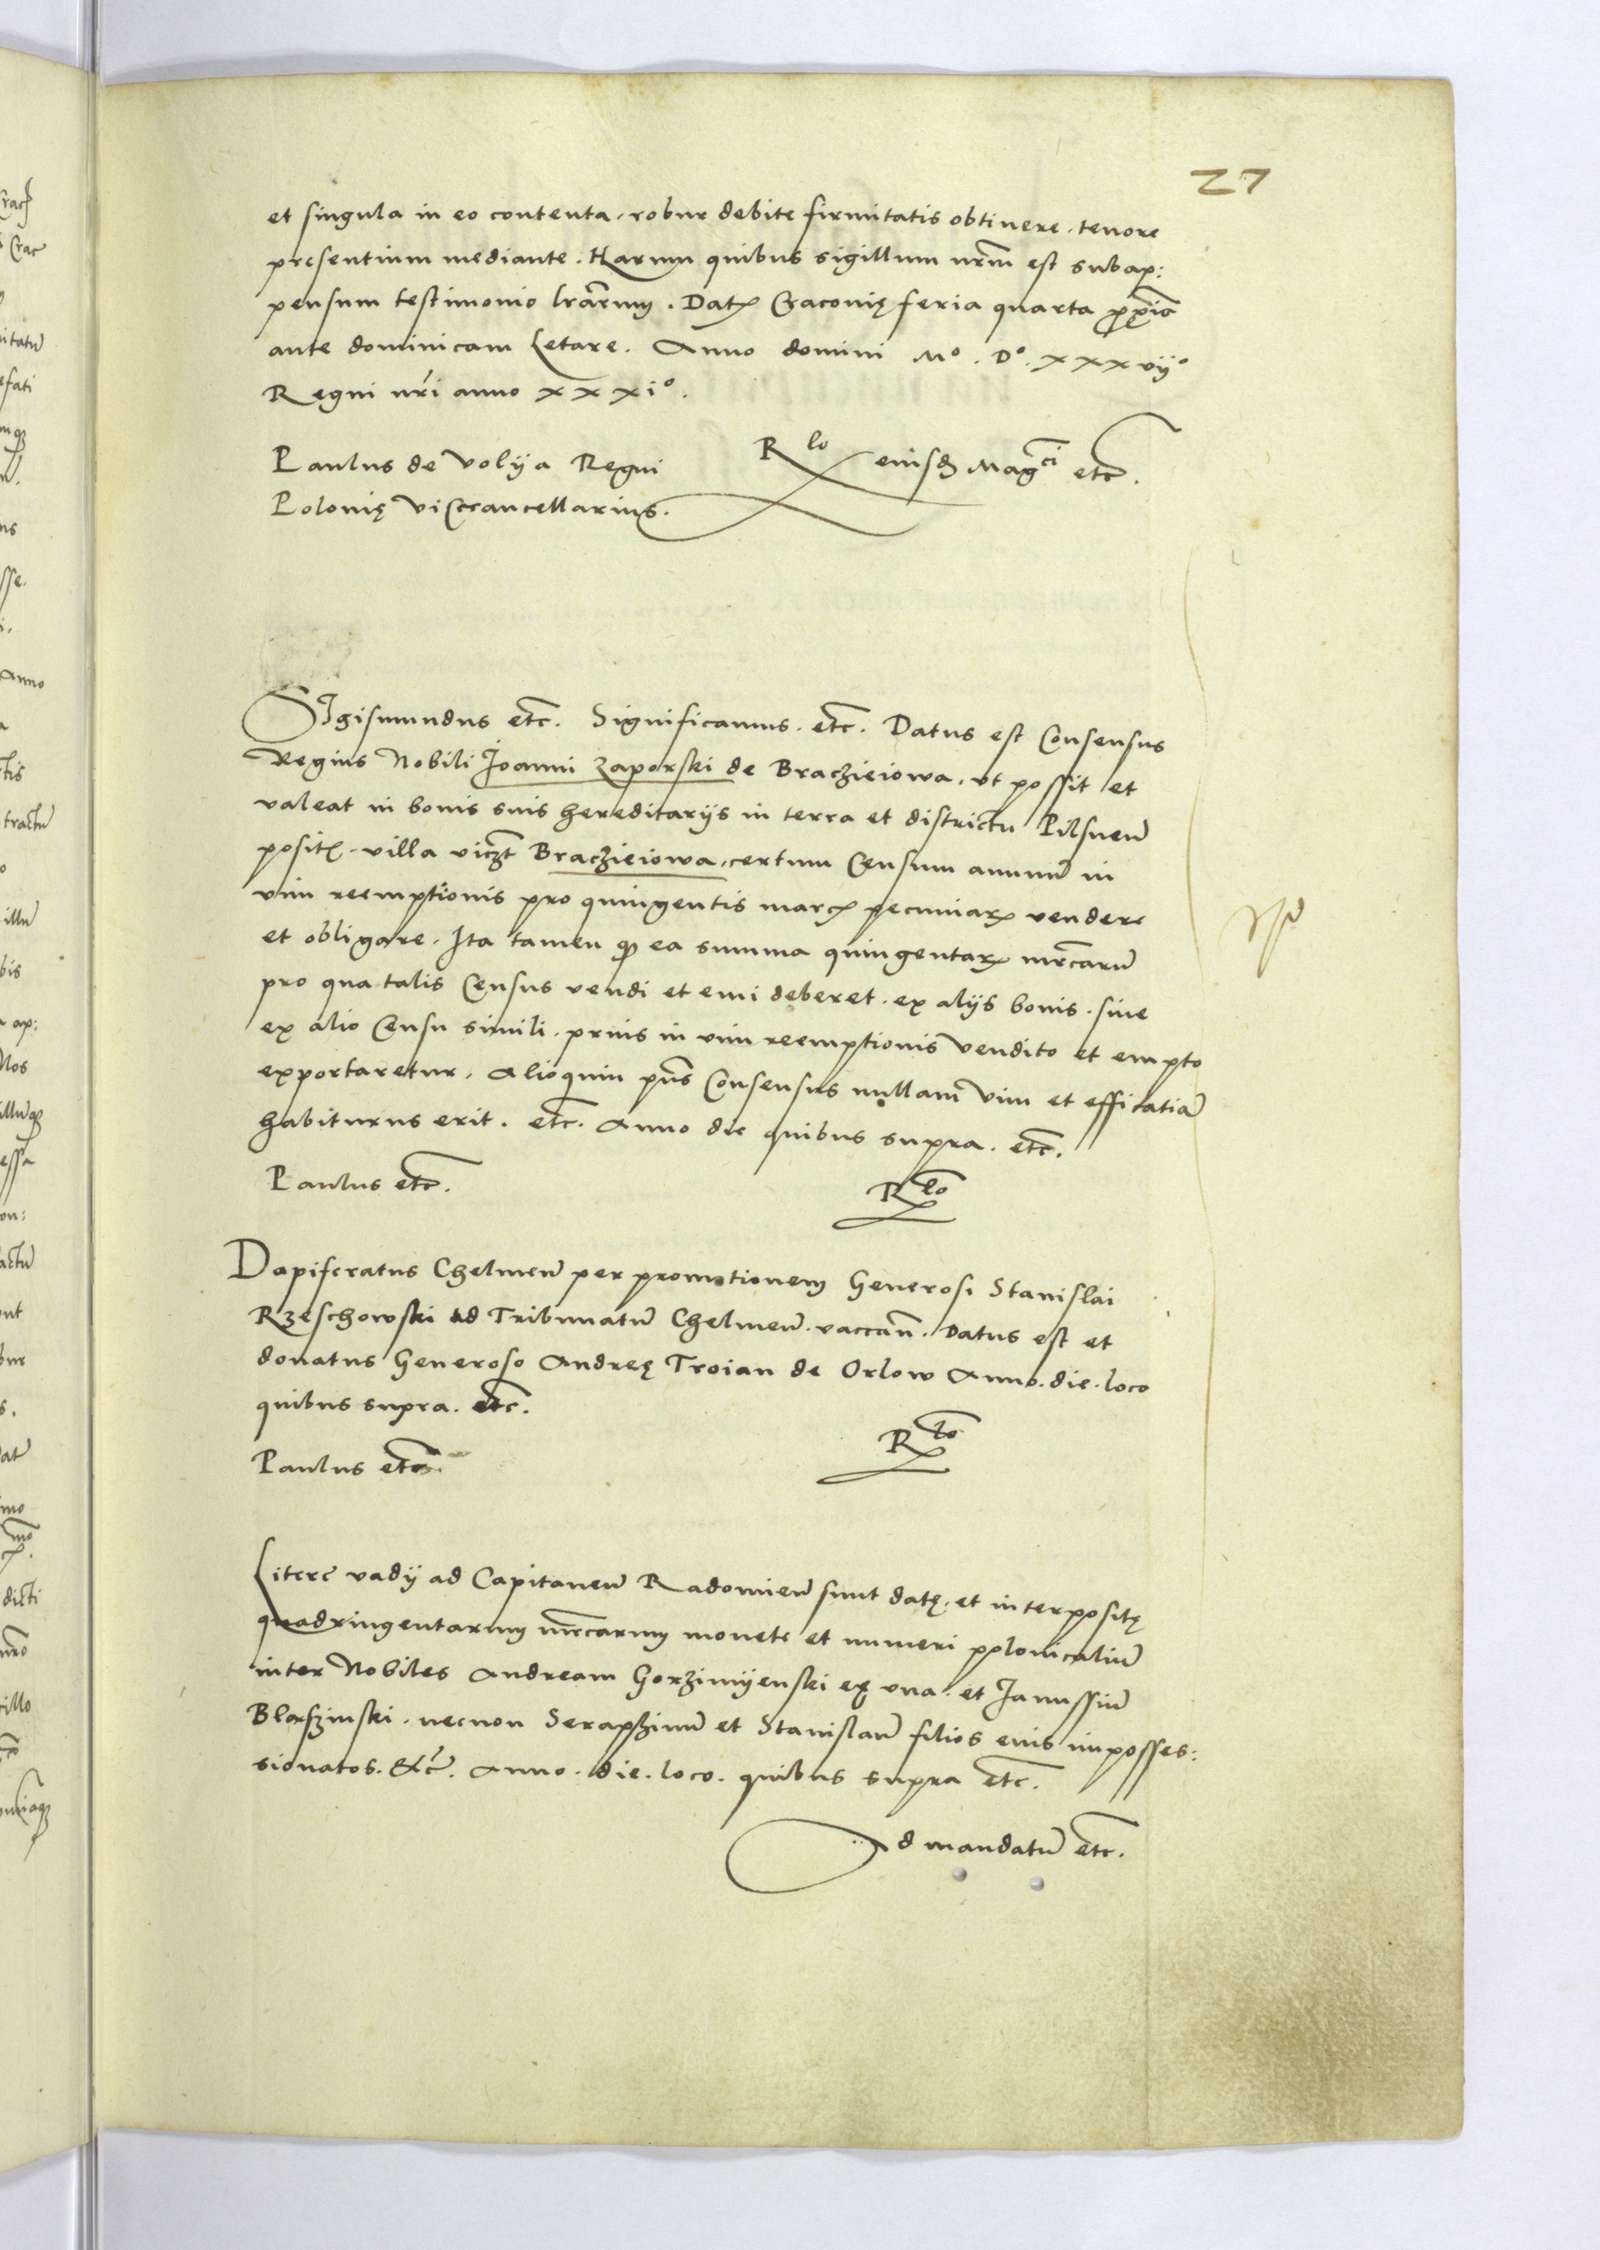 27
et singula in eo contenta, robur debite firmitatis obtinere, tenore
presentium mediante. Harum quibus sigillum nr̃m est subap:
pensum testimonio lr̃arum. Datꝭ Cracovię feria quarta ꝓxīa
ante dominicam Letare. Anno domini Mº. Dº. xxxvijº
Regni nr̃i anno xxxiº.
Paulus de Volija Regni
Polonię Vicecancellarius.
Rlo eiusdꝫ Magci etc̃.
SIgismundus etc̃. Significamus. etc̃. Datus est Consensus
Regius Nobili Joanni Zaporski de Braczieiowa, ut possit et
valeat in bonis suis hereditarijs in terra et districtu Pilsneñ
positꝭ. villa viczt Braczieiowa, certum Censum annuū in
vim reemptionis pro quingentis marcꝭ pecuniarꝫ vendere
et obligare. Ita tamen ꝙ ea summa quingentarꝫ mr̃carū
pro qua talis Census vendi et emi deberet. ex alijs bonis. sive
ex alio Censu simili. prius in vim reemptionis vendito et empto
exportaretur. Alioquin pñs Consensus nullam vim et efficatiā
habiturus erit. etc̃. Anno die quibus supra. etc̃.
Paulus etc̃.
Rlo
Dapiferatus Chelmeñ per promotionem Generosi Stanislai
Rzeschowski ad Tribunatū Chelmeñ. vaccañ. Datus est et
donatus Generoso Andreę Troian de Orlow Anno. die. loco
quibus supra. etc̃.
Paulus etc̃.
Rto
Litere vadij ad Capitaneū Radomieñ sunt datę. et interpositę
quadringentarum mr̃carum monete et numeri polonicaliū
inter Nobiles Andream Gorzimijenski ex una. et Janussiū
Blaszinski. necnon Seraphinū et Stanislaū filios eius imposses:
sionatos. &c̃. Anno. die. loco. quibus supra etc̃.
Ad mandatū etc̃.